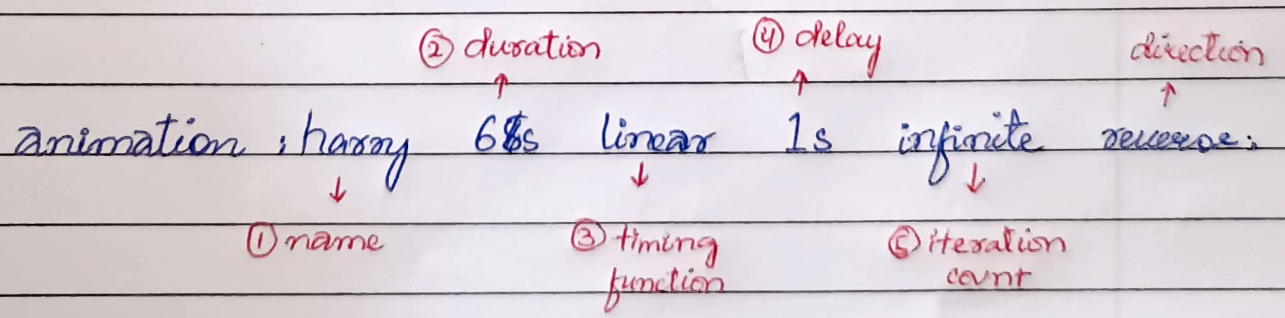 ② duration ④ delay direction
animation : harry 6s linear 1s infinite reverse;
① name ③ timing ⑤ iteration
function count